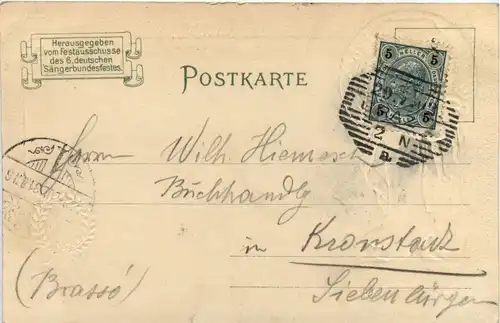 Herausgegeben
vom Festausschusse
des 6. deutschen
Sängerbundesfestes.
POSTKARTE
5 HELLER 5
5 5
2 N
a.
Herrn Wilh. Hiemesch
Buchhandlg
in Kronstadt
(Brassó) Siebenbürgen